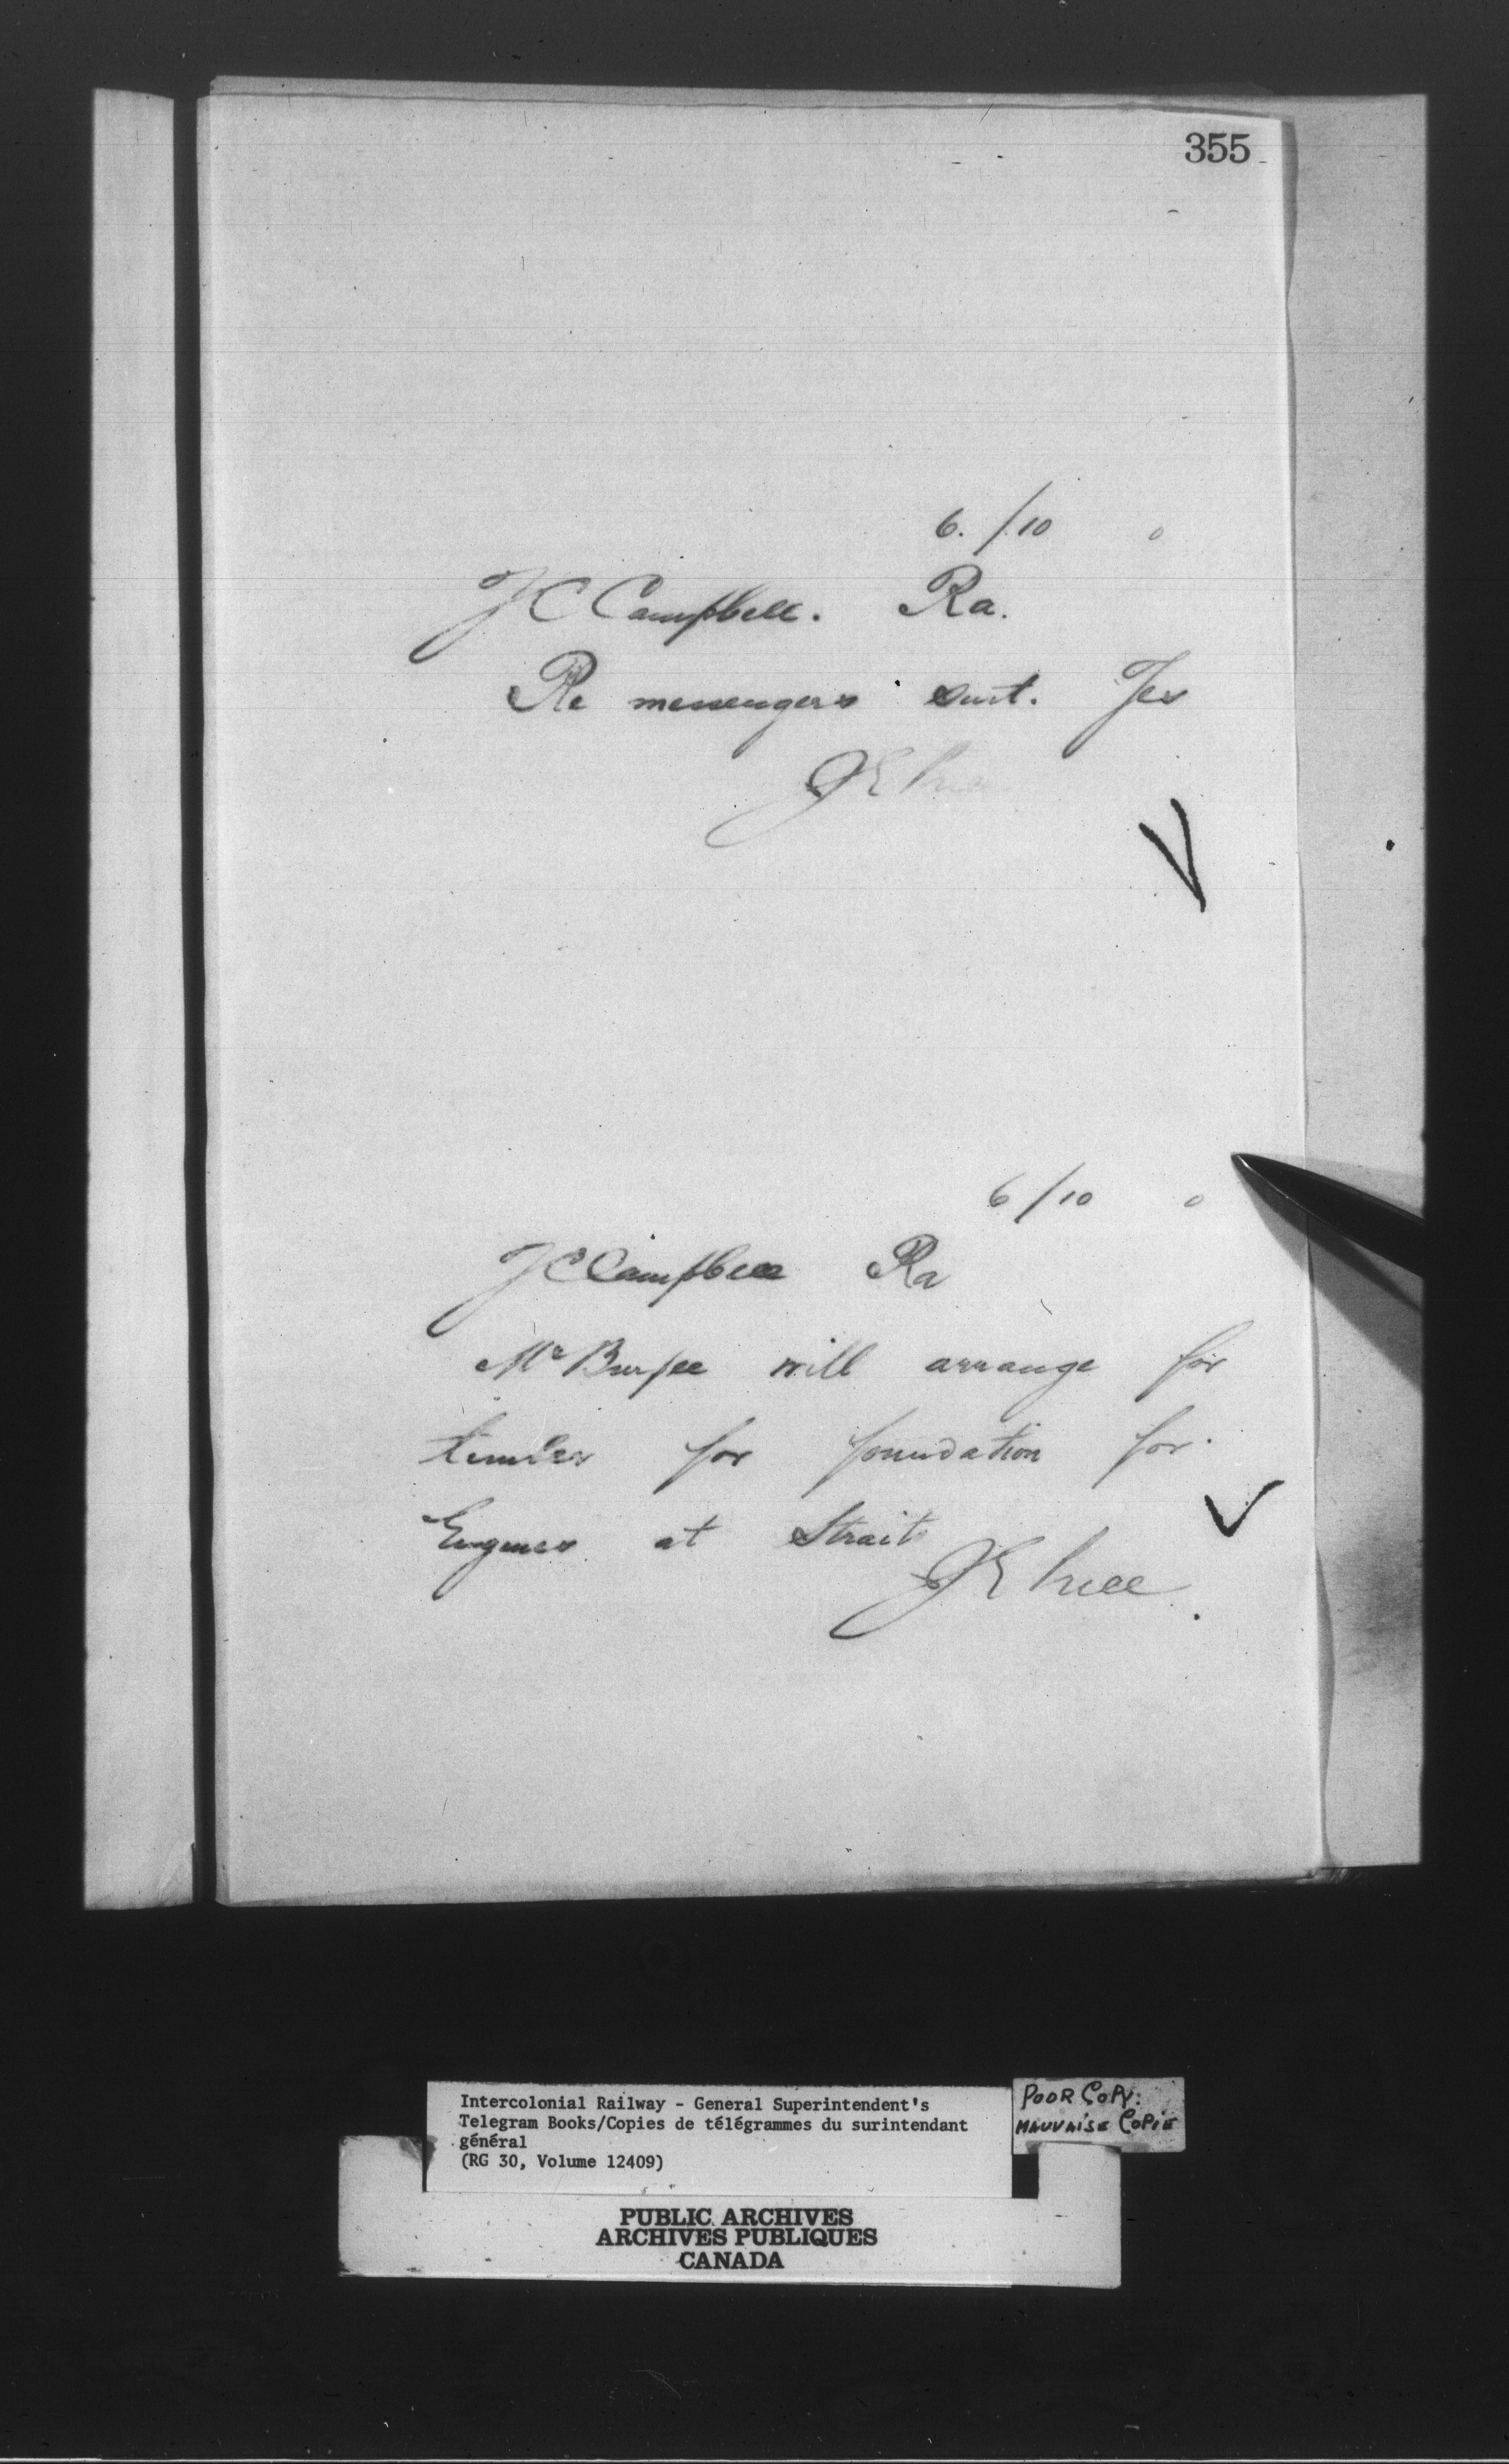 355
6./10
J C Campbell. Ra.
Re messengers suit. Yes
J E Price
6/10
J C Campbell Ra
Mr Burpee will arrange for
timber for foundation for
Engines at Strait
J E Price
Intercolonial Railway - General Superintendent's
Telegram Books/Copies de télégrammes du surintendant
général
(RG 30, Volume 12409)
POOR COPY.
MAUVAISE COPIE
PUBLIC ARCHIVES
ARCHIVES PUBLIQUES
CANADA